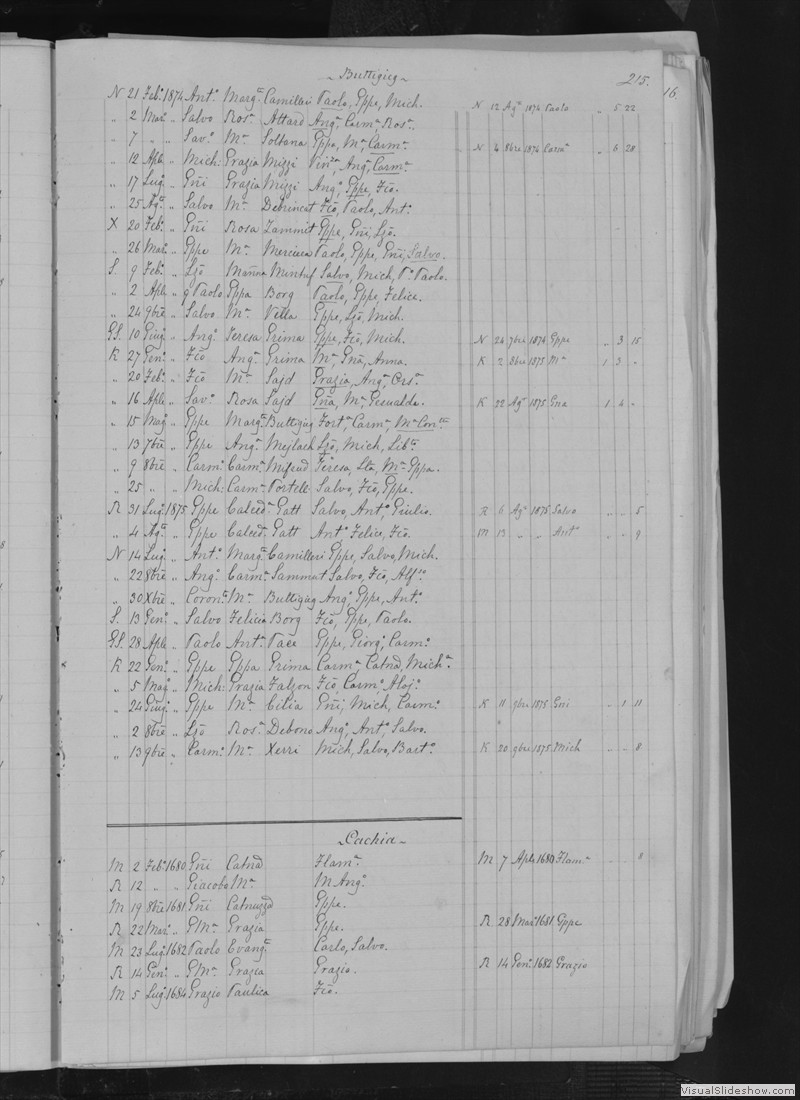 Buttigieg
215.
16.
N 21 Febo 1874 Anto Marga Camilleri Paolo, Gppe, Mich. N 12 Ago 1874 Paolo " 5 22
" 2 Mar. " Salvo Rosa Attard Ango, Carma, Rosa.
" 7 " " Savo Ma Soltana Gppa, Ma, Carma. N 4 8bre 1874 " 6 28
" 12 Aple " Mich: Grazia Mizzi Vinza, Ango, Carma.
" 17 Lugo " Gñi Grazia Mizzi Ango, Gppe, Fco.
" 25 Ago " Salvo Ma Debrincat Fco, Paolo, Anto.
X 20 Febo " Gñi Rosa Zammit Gppe, Gñi, Ljo.
" 26 Mar. " Gppe Ma Mercieca Paolo, Gppe, Gñi, Salvo.
S. 9 Febo " Ljo Marina Mintuf Salvo, Mich, Po Paolo.
" 2 Aple " Paolo Gppa Borg Paolo, Gppe, Felice.
" 24 9bre " Salvo Ma Vella Gppe, Ljo, Mich.
GS. 10 Giugo " Ango Teresa Grima Gppe, Fco, Mich. N 24 7bre 1874 Gppe " 3 15
K 27 Geno " Fco Anga Grima Ma, Gña, Anna. K 2 8bre 1875 Ma 1 3 "
" 20 Febo " Fco Ma Sajd Grazia, Anga, Orsa.
" 16 Aple " Savo Rosa Sajd Gña, Ma, Gesualda. K 22 Ago 1875 Gña 1 4 "
" 15 Mago " Gppe Marga Buttigieg Forta, Carma, Ma Conta.
" 13 7bre " Gppe Anga Mejlach Ljo, Mich, Liba.
" 9 8bre " Carmo Carma Mifsud Teresa, Lta, Ma Gppa.
" 25 " " Mich: Carma Portelli Salvo, Fco, Gppe.
R 31 Lugo 1875 Gppe Calceda Gatt Salvo, Anto, Giulio. R 6 Ago 1875 Salvo " " 5
" 4 Ago " Gppe Calceda Gatt Anto Felice, Fco. M 13 " " Anto " " 9
N 14 Lugo " Anto Marga Camilleri Gppe, Salvo, Mich.
" 22 8bre " Ango Carma Sammut Salvo, Fco, Alfso.
" 30 Xbre " Corono Ma Buttigieg Ango, Gppe, Anto.
S. 13 Geno " Salvo Felicia Borg Fco, Gppe, Paolo.
GS. 28 Aple " Paolo Anta Pace Gppe, Giorgo, Carmo.
K 22 Geno " Gppe Gppa Grima Carma, Catnd, Micha.
" 5 Mago " Mich: Grazia Falzon Fco, Carmo, Alojo.
" 24 Giugo " Gppe Ma Cilia Gñi, Mich, Carmo. K 11 9bre 1875 Gñi " 1 11
" 2 8bre " Ljo Rosa Debono Ango, Anto, Salvo.
" 13 9bre " Carmo Ma Xerri Mich, Salvo, Barto. K 20 9bre 1875 Mich " " 8
Cachia
M 2 Febo 1680 Gñi Catnd Flama. M 7 Aple 1680 Flama " 8
R 12 " " Giacobo Ma M Anga.
M 19 8bre 1681 Gñi Catnuzzd Gppe.
R 22 Mar. " GMa Grazia Gppe. R 28 Mar. 1681 Gppe
M 23 Lugo 1682 Paolo Evanga Carlo, Salvo.
R 14 Geno " GMa Grazia Grazio. R 14 Geno 1682 Grazio
M 5 Lugo 1684 Grazio Paulica Fco.
VisualSlideshow.com